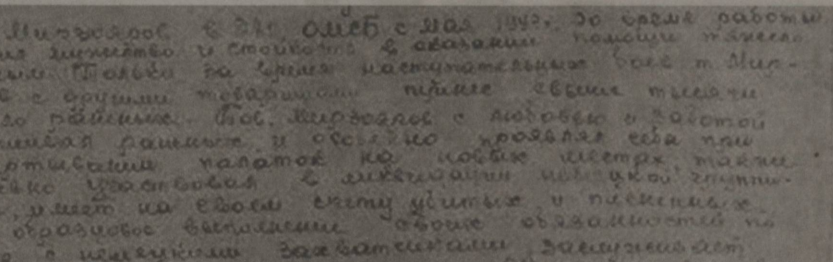 Мирзояров в 240 ОМСБ с мая 1942. За время работы
мужество и стойкость в оказании помощи тяжело
Только за время наступательных боев т. Мир-
с другими товарищами принес свыше тысячи
раненых. Тов. Мирзояров с любовью и заботой
раненых и особенно проявлял себя при
палаток на новых местах также
участвовал в ликвидации немецкой группи-
имеет на своем счету убитых и пленных
образцовое выполнение своих обязанностей по
с немецкими захватчиками заслуживает